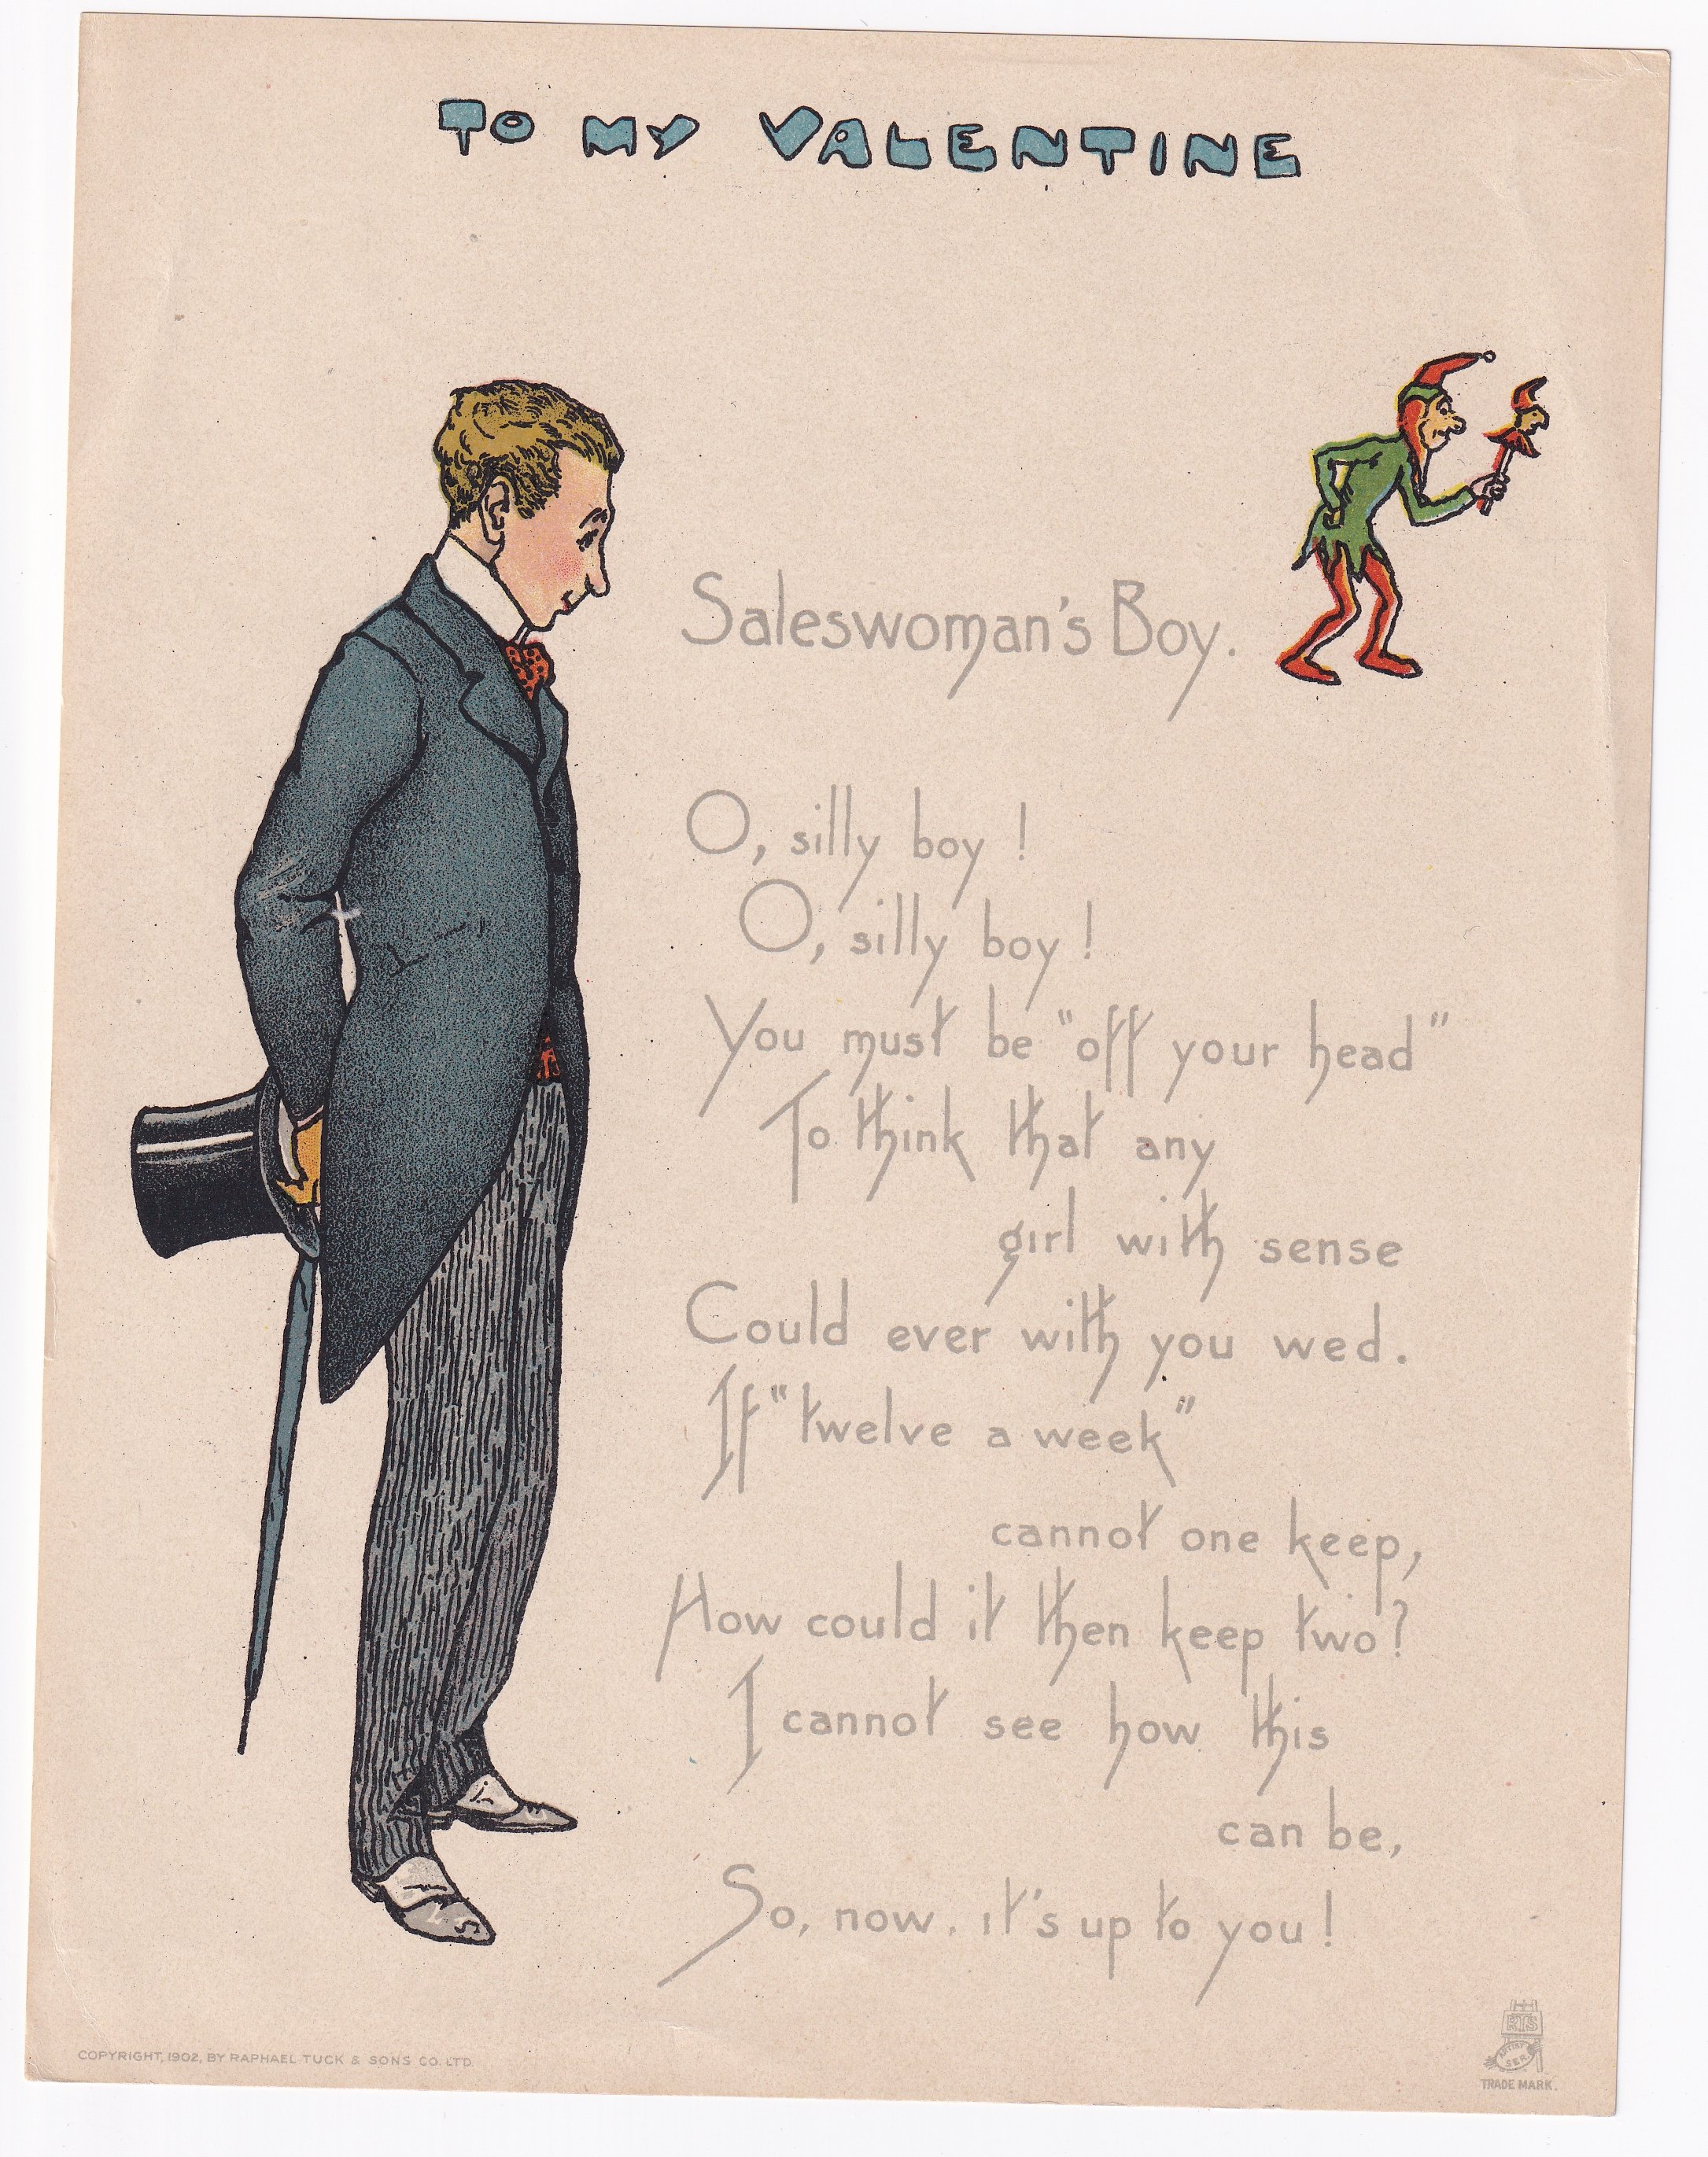 TO MY VALENTINE
Saleswoman's Boy.
O, silly boy !
O, silly boy !
You must be "off your head"
To think that any
girl with sense
Could ever with you wed.
If "twelve a week"
cannot one keep,
How could it then keep two?
I cannot see how this
can be,
So, now, it's up to you!
COPYRIGHT, 1902, BY RAPHAEL TUCK & SONS CO. LTD.
RTS
ARTIST
SER.
TRADE MARK.